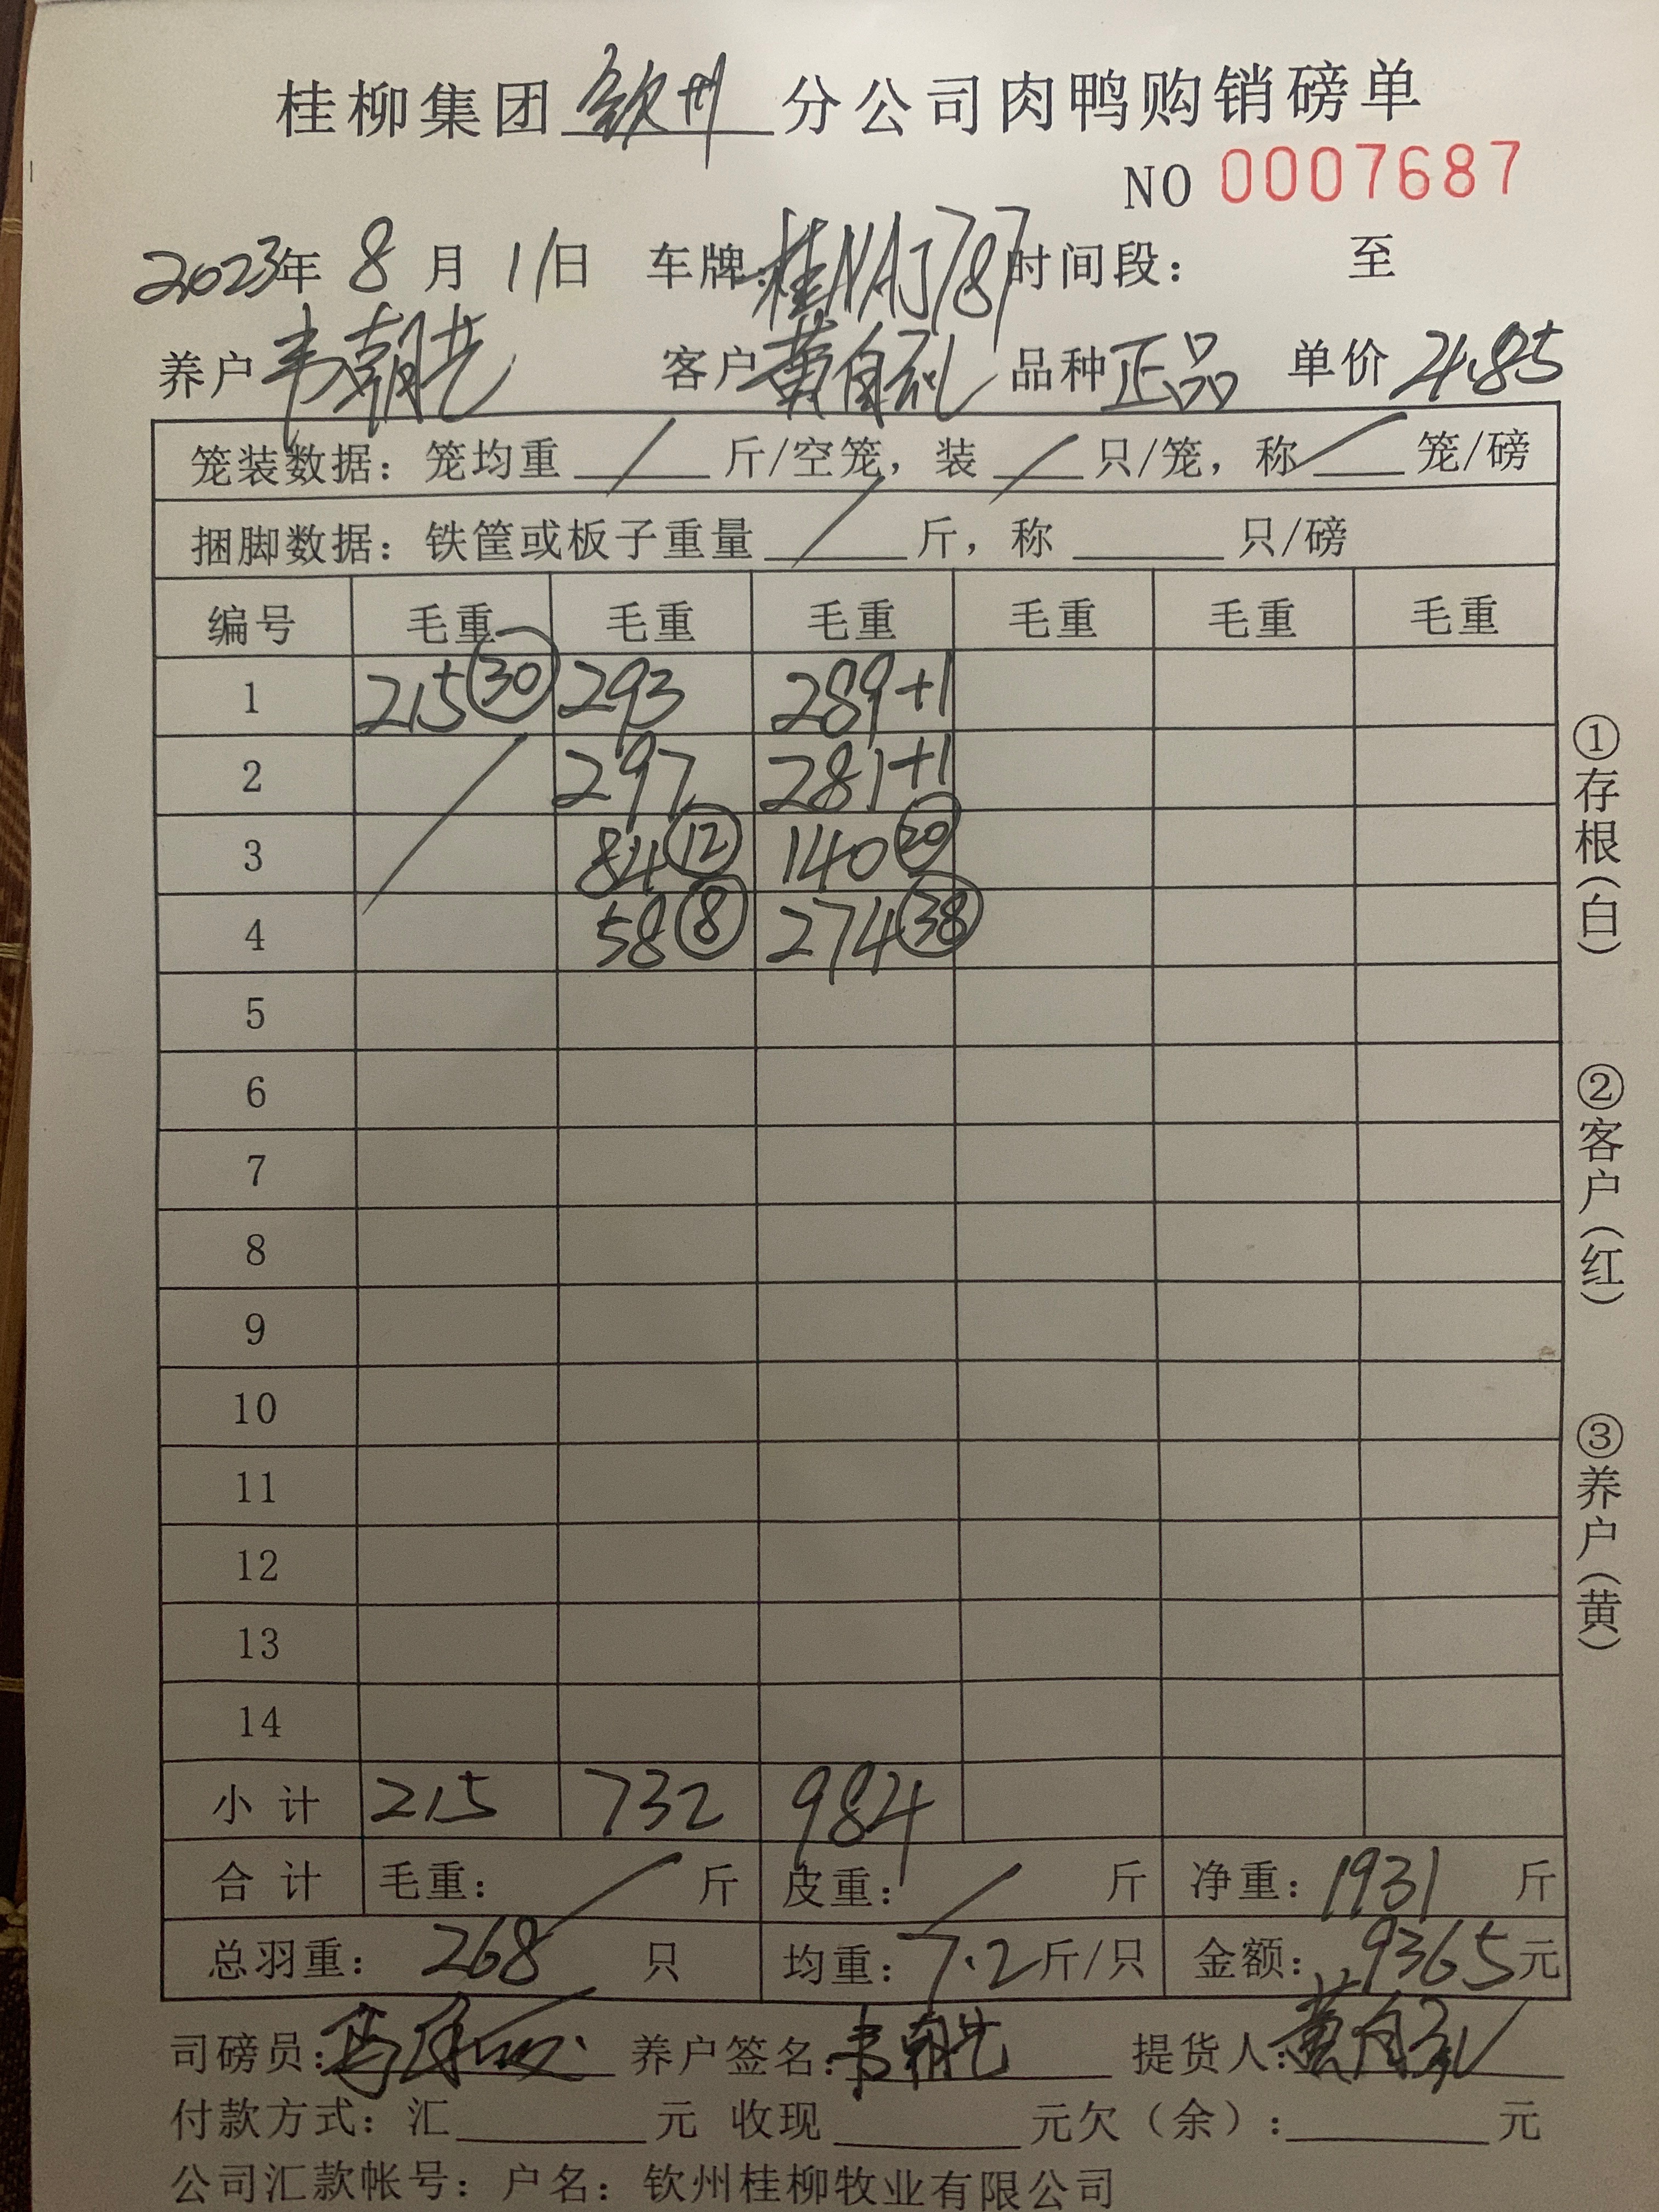 桂柳集团钦州分公司肉鸭购销磅单
NO 0007687
2023年 8 月 11日 车牌:桂NAJ787 时间段: 至
养户 韦朝先 客户 黄自礼 品种 正品 单价 4.85
笼装数据: 笼均重 / 斤/空笼, 装 / 只/笼, 称 / 笼/磅
捆脚数据: 铁筐或板子重量 / 斤, 称 只/磅
编号 毛重 毛重 毛重 毛重 毛重 毛重
1 215 ㉚ 293 289+1
2 297 281+1
3 84 ⑫ 140 ⑳
4 58 ⑧ 274 ㊳
5
6
7
8
9
10
11
12
13
14
小 计 215 732 984
合 计 毛重: / 斤 皮重: / 斤 净重: 1931 斤
总羽重: 268 只 均重: 7.2 斤/只 金额: 9365 元
司磅员: 养户签名: 韦朝先 提货人: 黄自礼
付款方式: 汇 元 收现 元欠(余): 元
公司汇款帐号: 户名: 钦州桂柳牧业有限公司
①存根(白)
②客户(红)
③养户(黄)